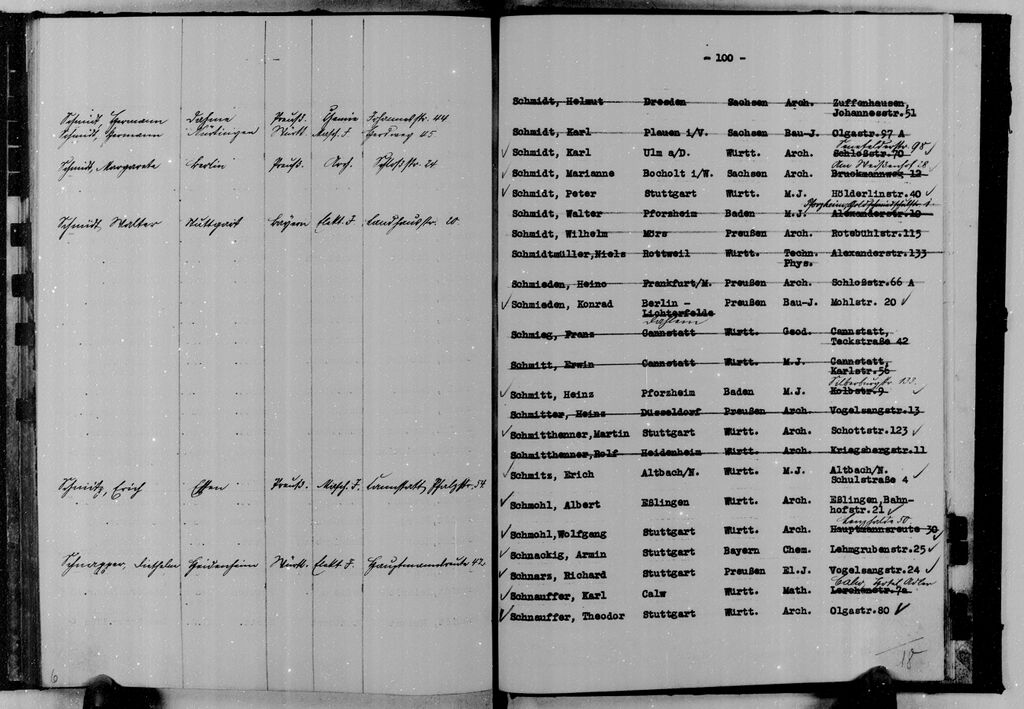 Schmidt, Hermann Dahme Preuß. Chemie Johannesstr. 44
Schmidt, Hermann Nürtingen Württ. Masch.J. Herdweg 45
Schmidt, Margarete Berlin Preuß. Arch. Schloßstr. 24
Schmidt, Walter Stuttgart Bayern Elekt.J. Landhausstr. 20
Schmitz, Erich Essen Preuß. Masch.J. Cannstatt, Pfalzstr. 54
Schnapper, Diethelm Heidenheim Württ. Elekt.J. Hauptmannsreute 42
6
- 100 -
Schmidt, Helmut Dresden Sachsen Arch. Zuffenhausen,
Johannesstr.51
Schmidt, Karl Plauen i/V. Sachsen Bau-J. Olgastr.97 A
Senefelderstr. 98
Schmidt, Karl Ulm a/D. Württ. Arch. Schloßstr.70
Am Weißenhof 28
Schmidt, Marianne Bocholt i/W. Sachsen Arch. Bruckmannweg 12
Schmidt, Peter Stuttgart Württ. M.J. Hölderlinstr.40
Pforzheim,
Schmidt, Walter Pforzheim Baden M.J. Alexanderstr.10
Schmidt, Wilhelm Mörs Preußen Arch. Rotebühlstr.115
Schmidtmüller,Niels Rottweil Württ. Techn. Alexanderstr.133
Phys.
Schmieden, Heino Frankfurt/M. Preußen Arch. Schloßstr.66 A
Schmieden, Konrad Berlin - Preußen Bau-J. Mohlstr. 20
Lichterfelde
Dahlem
Schmieg, Franz Cannstatt Württ. Geod. Cannstatt,
Teckstraße 42
Schmitt, Erwin Cannstatt Württ. M.J. Cannstatt,
Karlstr.56
Silberburgstr. 133.
Schmitt, Heinz Pforzheim Baden M.J. Kolbstr.9
Schmitter, Heinz Düsseldorf Preußen Arch. Vogelsangstr.13
Schmitthenner,Martin Stuttgart Württ. Arch. Schottstr.123
Schmitthenner,Rolf Heidenheim Württ. Arch. Kriegsbergstr.11
Schmitz, Erich Altbach/N. Württ. M.J. Altbach/N.
Schulstraße 4
Schmohl, Albert Eßlingen Württ. Arch. Eßlingen,Bahn-
hofstr.21
Lenzhalde 50
Schmohl,Wolfgang Stuttgart Württ. Arch. Hauptmannsreute 30
Schnackig, Armin Stuttgart Bayern Chem. Lehmgrubenstr.25
Schnarz, Richard Stuttgart Preußen El.J. Vogelsangstr.24
Calw, Hotel Adler
Schnauffer, Karl Calw Württ. Math. Lerchenstr.7a
Schnauffer, Theodor Stuttgart Württ. Arch. Olgastr.80
18